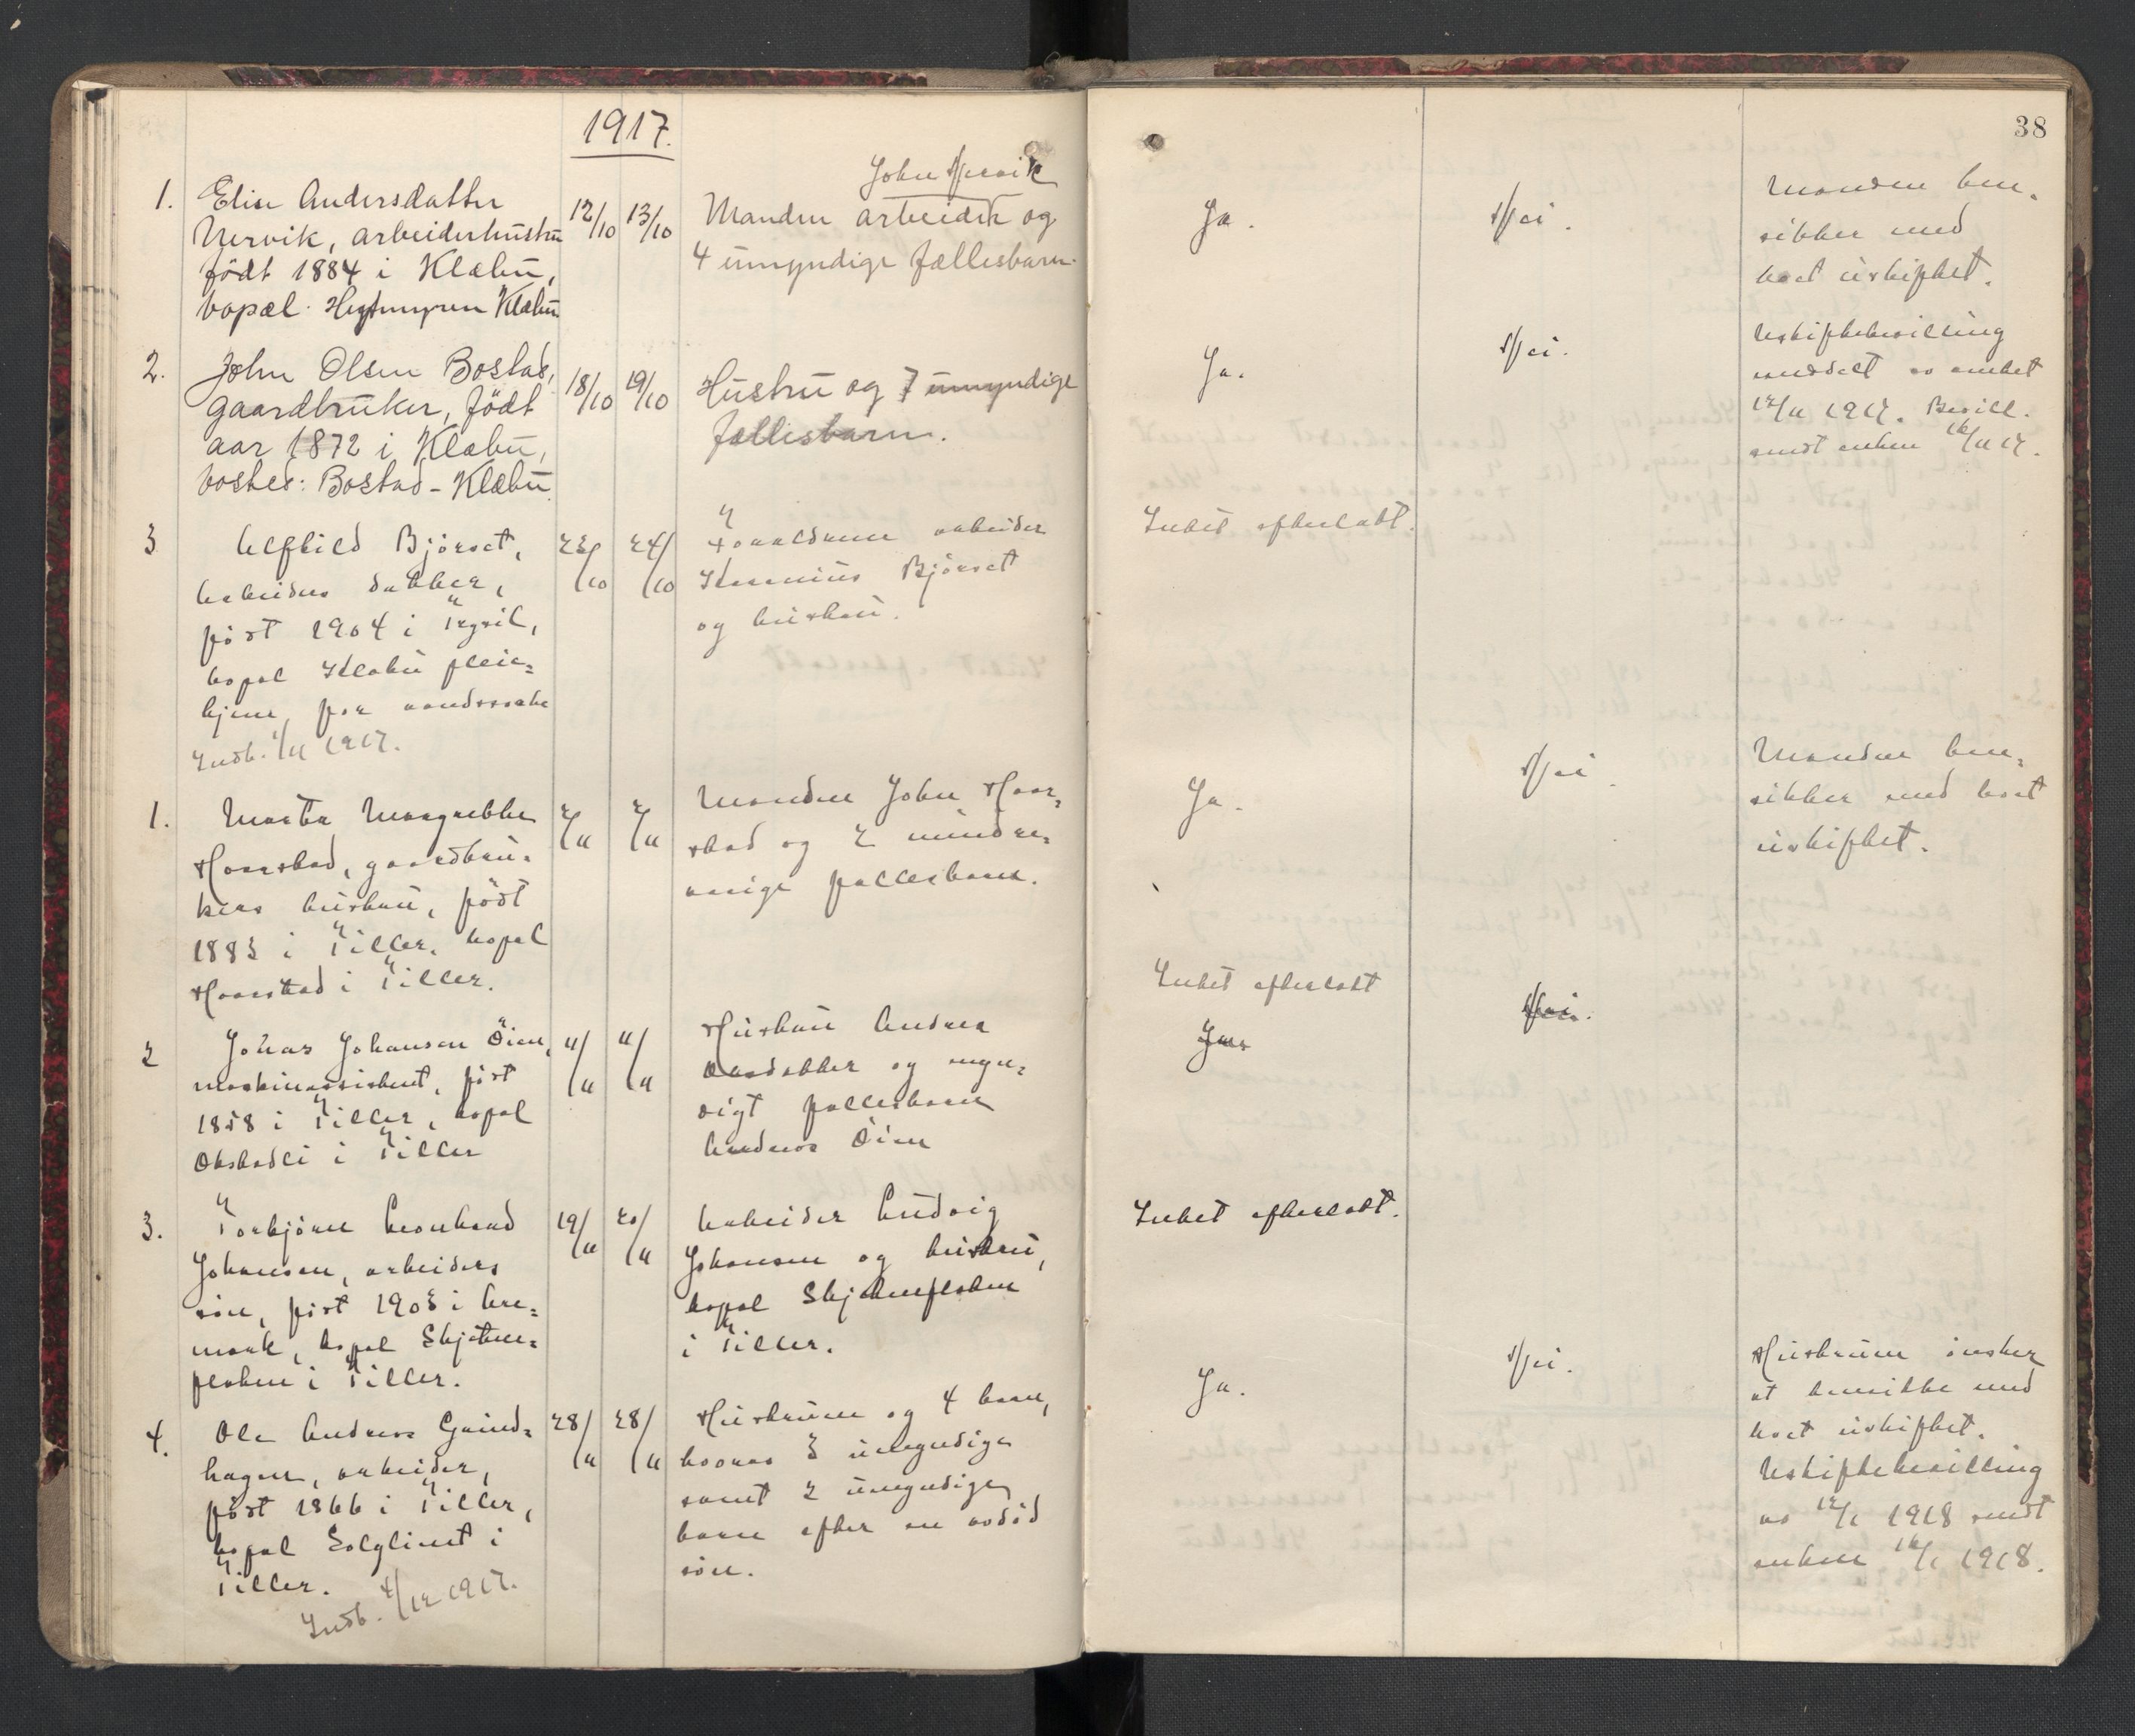 1917.
38
1. Elise Andersdatter
Nervik, arbeiderhustru
födt 1884 i Klæbu,
bopæl. Klæbu
12/10 13/10
John Nervik
Manden arbeider og
4 umyndige fællesbarn.
Ja.
Nei.
Manden ben.
sitter med
boet uskiftet.
2. John Olsen Bostad,
gaardbruker, födt
aar 1872 i Klæbu,
bosted: Bostad - Klæbu
18/10 19/10
Hustru og 7 umyndige
fællesbarn.
Ja.
Nei.
Uskiftebevilling
meddelt av embet
12/11 1917. Bevill.
sendt enken 16/11 17.
3 Alfhild Björset,
arbeiders datter,
födt 1904 i
bopæl Klæbu pleie=
hjem for aandssvake
Indb. 1/11 1917.
23/10 24/10
Forældrene arbeider
Björset
og hustru.
Intet efterladt.
1. Marta Margrethe
Haarstad, gaardbru=
kers hustru, födt
1883 i Tiller, bopæl
Haarstad i Tiller.
2/11 2/11
Manden John Haar=
stad og 2 mindre=
aarige fællesbarn.
Ja.
Nei.
Manden ben=
sitter med boet
uskiftet.
2 Johan Johansen Öien,
maskinassistent, födt
1858 i Tiller, bopæl
i Tiller
11/11 11/11
Hustru Andrea
Olsdatter og myn=
digt fællesbarn
Andreas Öien
Intet efterladt
Ja.
Nei.
3. Torbjörn Leonhard
Johansen, arbeiders
sön, födt 1903 i Are=
mark, bopæl Skjetne=
flaten i Tiller.
19/11 20/11
Arbeider Ludvig
Johansen og hustru,
bopæl Skjetneflaten
i Tiller.
Intet efterladt.
4. Ole Andreas Grind=
hagen, arbeider,
födt 1866 i Tiller,
bopæl Solglimt i
Tiller.
Indb. 4/12 1917.
28/11 28/11
Hustruen og 4 barn,
hvorav 3 umyndige
samt 2 umyndige
barn efter en avdöd
sön.
Ja.
Nei.
Hustruen önsker
at hensitte med
boet uskiftet.
Uskiftebevilling
av 12/1 1918 sendt
enken 16/1 1918.